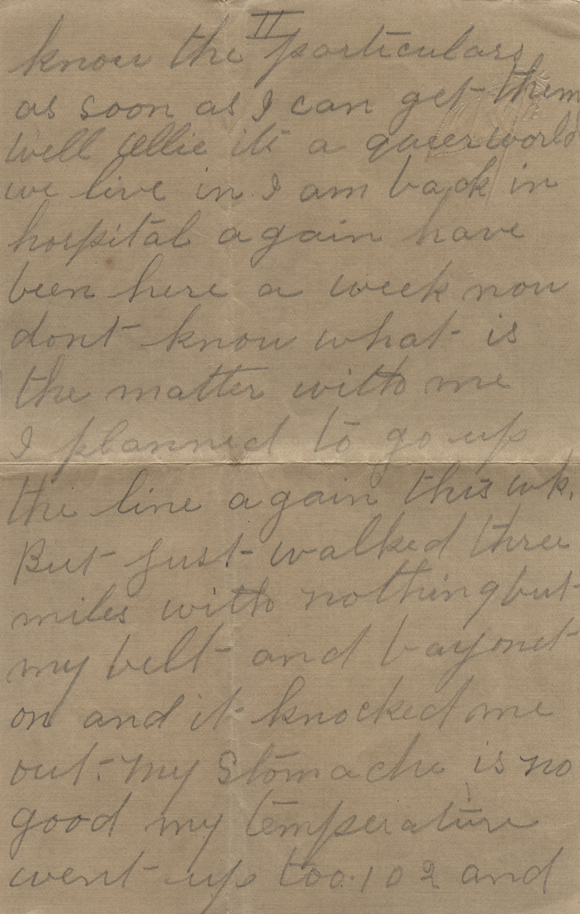 II
know the particulars
as soon as I can get them
well Ellie its a queer world
we live in I am back in
hospital again have
been here a week now
dont know what is
the matter with me
I planned to go up
the line again this wk.
But just walked three
miles with nothing but
my belt and bayonet
on and it knocked me
out. My Stomache is no
good my temperature
went up too. 102 and